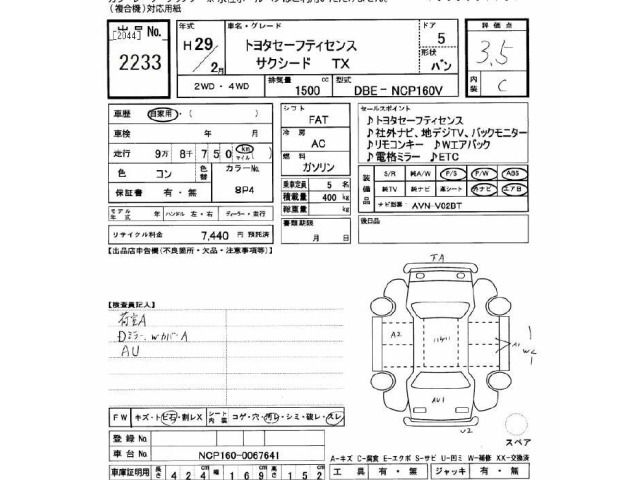 (複合機)対応用紙
出品No.
[2044]
2233
年式
H 29 / 2月
車名・グレード
トヨタセーフティセンス
サクシード TX
ドア 5
形状 バン
評価点
3.5
内装 C
2WD・4WD
排気量 1500 cc
型式 DBE- NCP160V
車歴 自家用・( )
車検 年 月
走行 9万 8千 750 km マイル
色 コン
色替
カラーNo. 8P4
保証書 有・無
モデル年式 年 ハンドル 左・右 ディーラー・並行
リサイクル料金 7,440 円 預託済
シフト FAT
冷房 AC
燃料 ガソリン
乗車定員 5 名
積載量 400 kg
総重量 kg
書類期限
月 日
セールスポイント
♪トヨタセーフティセンス
♪社外ナビ、地デジTV、バックモニター
♪リモコンキー ♪Wエアバック
♪電格ミラー ♪ETC
装備品
S/R 純A/W P/S P/W ABS
純TV 純ナビ 革シート 外ナビ エア日
ナビ型番 AVN-V02BT
後日品
【出品店申告欄(不良箇所・欠品・注意事項等)】
【検査員記入】
荷室A
Dミラー、WカバーA
AU
FA
A2
A1
W2
AU1
U2
スペア
FW キズ・トビ石・割レX
シート内装 コゲ・穴・汚レ・シミ・破レ・スレ
登録No.
車台No. NCP160-0067641
車庫証明用 長さ 424 cm 幅 169 cm 高さ 152 cm
A-キズ C-腐食 E-エクボ S-サビ U-凹ミ W-補修 XX-交換済
工具 有・無 ジャッキ 有・無